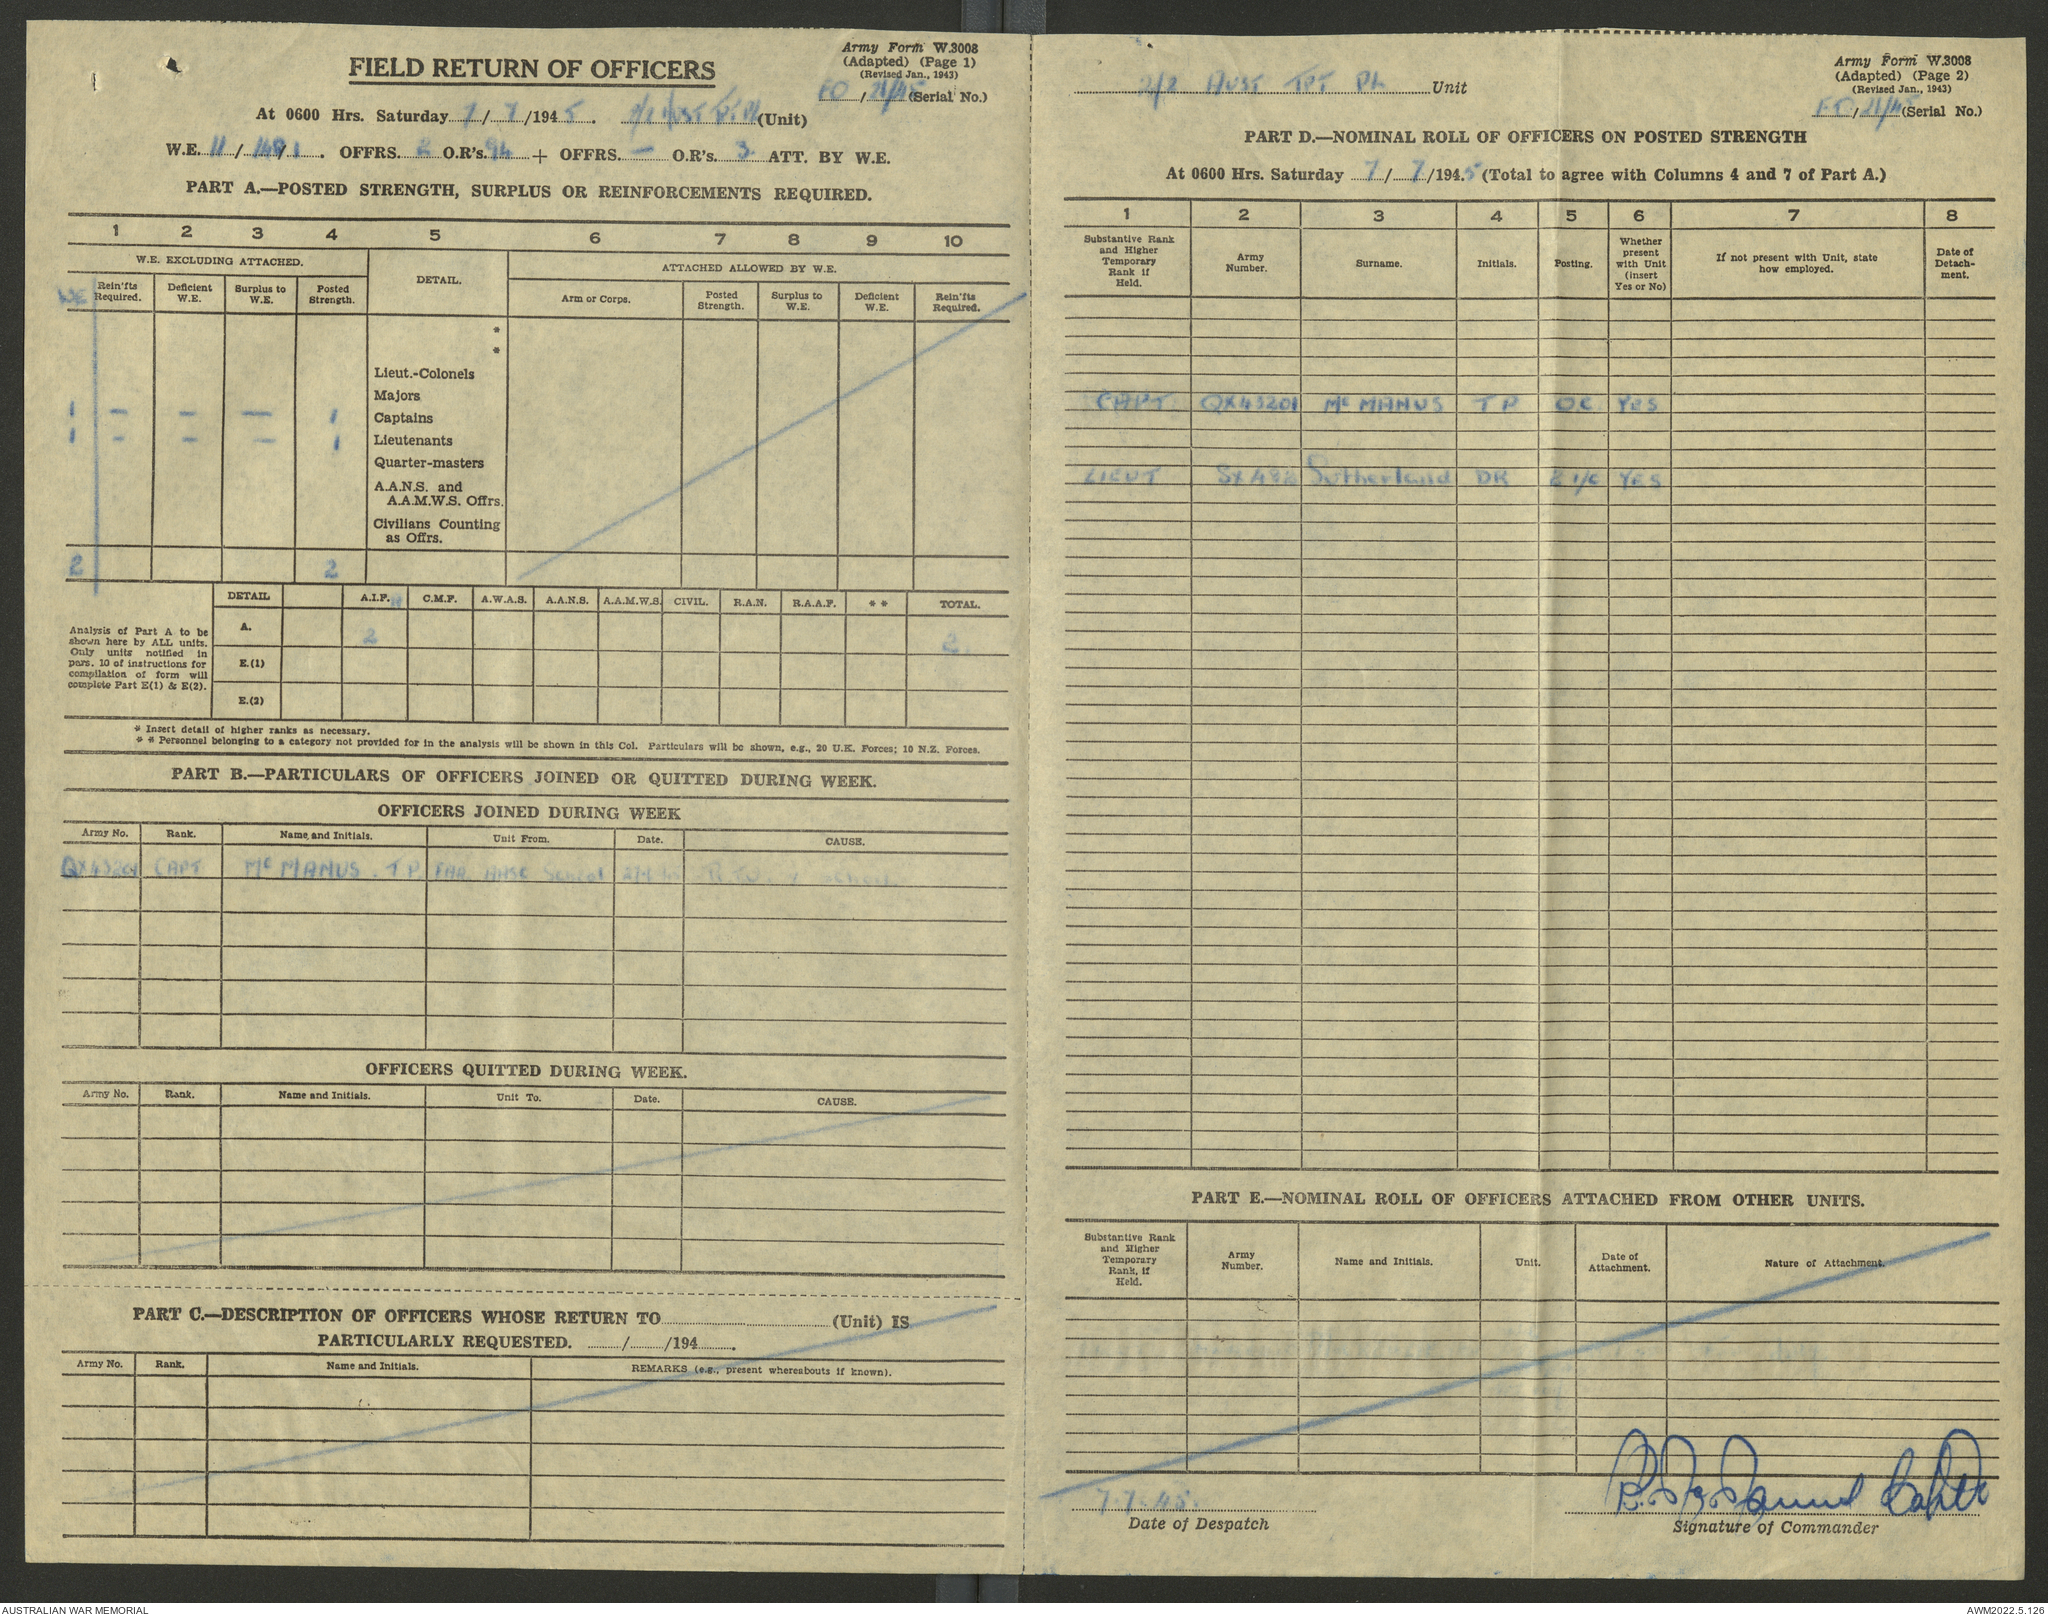 FIELD RETURN OF OFFICERS
Army Form W.3008
(Adapted) (Page 1)
(Revised Jan., 1943)
FO / 21/45 (Serial No.)
At 0600 Hrs. Saturday 7 / 7 /194 5. 2/2 Aust Tpt Pl (Unit)
W.E. 11 / 149 / 1. OFFRS. 2 O.R's. 94 + OFFRS. — O.R's. 3 ATT. BY W.E.
PART A.—POSTED STRENGTH, SURPLUS OR REINFORCEMENTS REQUIRED.
1 2 3 4 5 6 7 8 9 10
W.E. EXCLUDING ATTACHED. DETAIL. ATTACHED ALLOWED BY W.E.
WE Rein'fts Required. Deficient W.E. Surplus to W.E. Posted Strength. Arm or Corps. Posted Strength. Surplus to W.E. Deficient W.E. Rein'fts Required.
*
*
Lieut.-Colonels
Majors
1 – – — 1 Captains
1 – – – 1 Lieutenants
Quarter-masters
A.A.N.S. and
A.A.M.W.S. Offrs.
Civilians Counting
as Offrs.
2 2
Analysis of Part A to be shown here by ALL units. Only units notified in pars. 10 of instructions for compilation of form will complete Part E(1) & E(2).
DETAIL A.I.F. C.M.F. A.W.A.S. A.A.N.S. A.A.M.W.S. CIVIL. R.A.N. R.A.A.F. * * TOTAL.
A. 2 2.
E.(1)
E.(2)
* Insert detail of higher ranks as necessary.
* * Personnel belonging to a category not provided for in the analysis will be shown in this Col. Particulars will be shown, e.g., 20 U.K. Forces; 10 N.Z. Forces.
PART B.—PARTICULARS OF OFFICERS JOINED OR QUITTED DURING WEEK.
OFFICERS JOINED DURING WEEK
Army No. Rank. Name and Initials. Unit From. Date. CAUSE.
QX43201 CAPT McMANUS. T P. AASC School R.T.U.
OFFICERS QUITTED DURING WEEK.
Army No. Rank. Name and Initials. Unit To. Date. CAUSE.
PART C.—DESCRIPTION OF OFFICERS WHOSE RETURN TO (Unit) IS
PARTICULARLY REQUESTED. / /194 .
Army No. Rank. Name and Initials. REMARKS (e.g., present whereabouts if known).
2/2 AUST TPT PL Unit
Army Form W.3008
(Adapted) (Page 2)
(Revised Jan., 1943)
FO / 21/45 (Serial No.)
PART D.—NOMINAL ROLL OF OFFICERS ON POSTED STRENGTH
At 0600 Hrs. Saturday 7 / 7 /194.5 (Total to agree with Columns 4 and 7 of Part A.)
1 2 3 4 5 6 7 8
Substantive Rank and Higher Temporary Rank if Held. Army Number. Surname. Initials. Posting. Whether present with Unit (insert Yes or No) If not present with Unit, state how employed. Date of Detach-ment.
CAPT QX43201 McMANUS T P O.C YES
LIEUT Sutherland DR 2 i/c YES
PART E.—NOMINAL ROLL OF OFFICERS ATTACHED FROM OTHER UNITS.
Substantive Rank and Higher Temporary Rank, if Held. Army Number. Name and Initials. Unit. Date of Attachment. Nature of Attachment.
7.7.45.
Date of Despatch
Capt
Signature of Commander
AUSTRALIAN WAR MEMORIAL
AWM2022.5.126